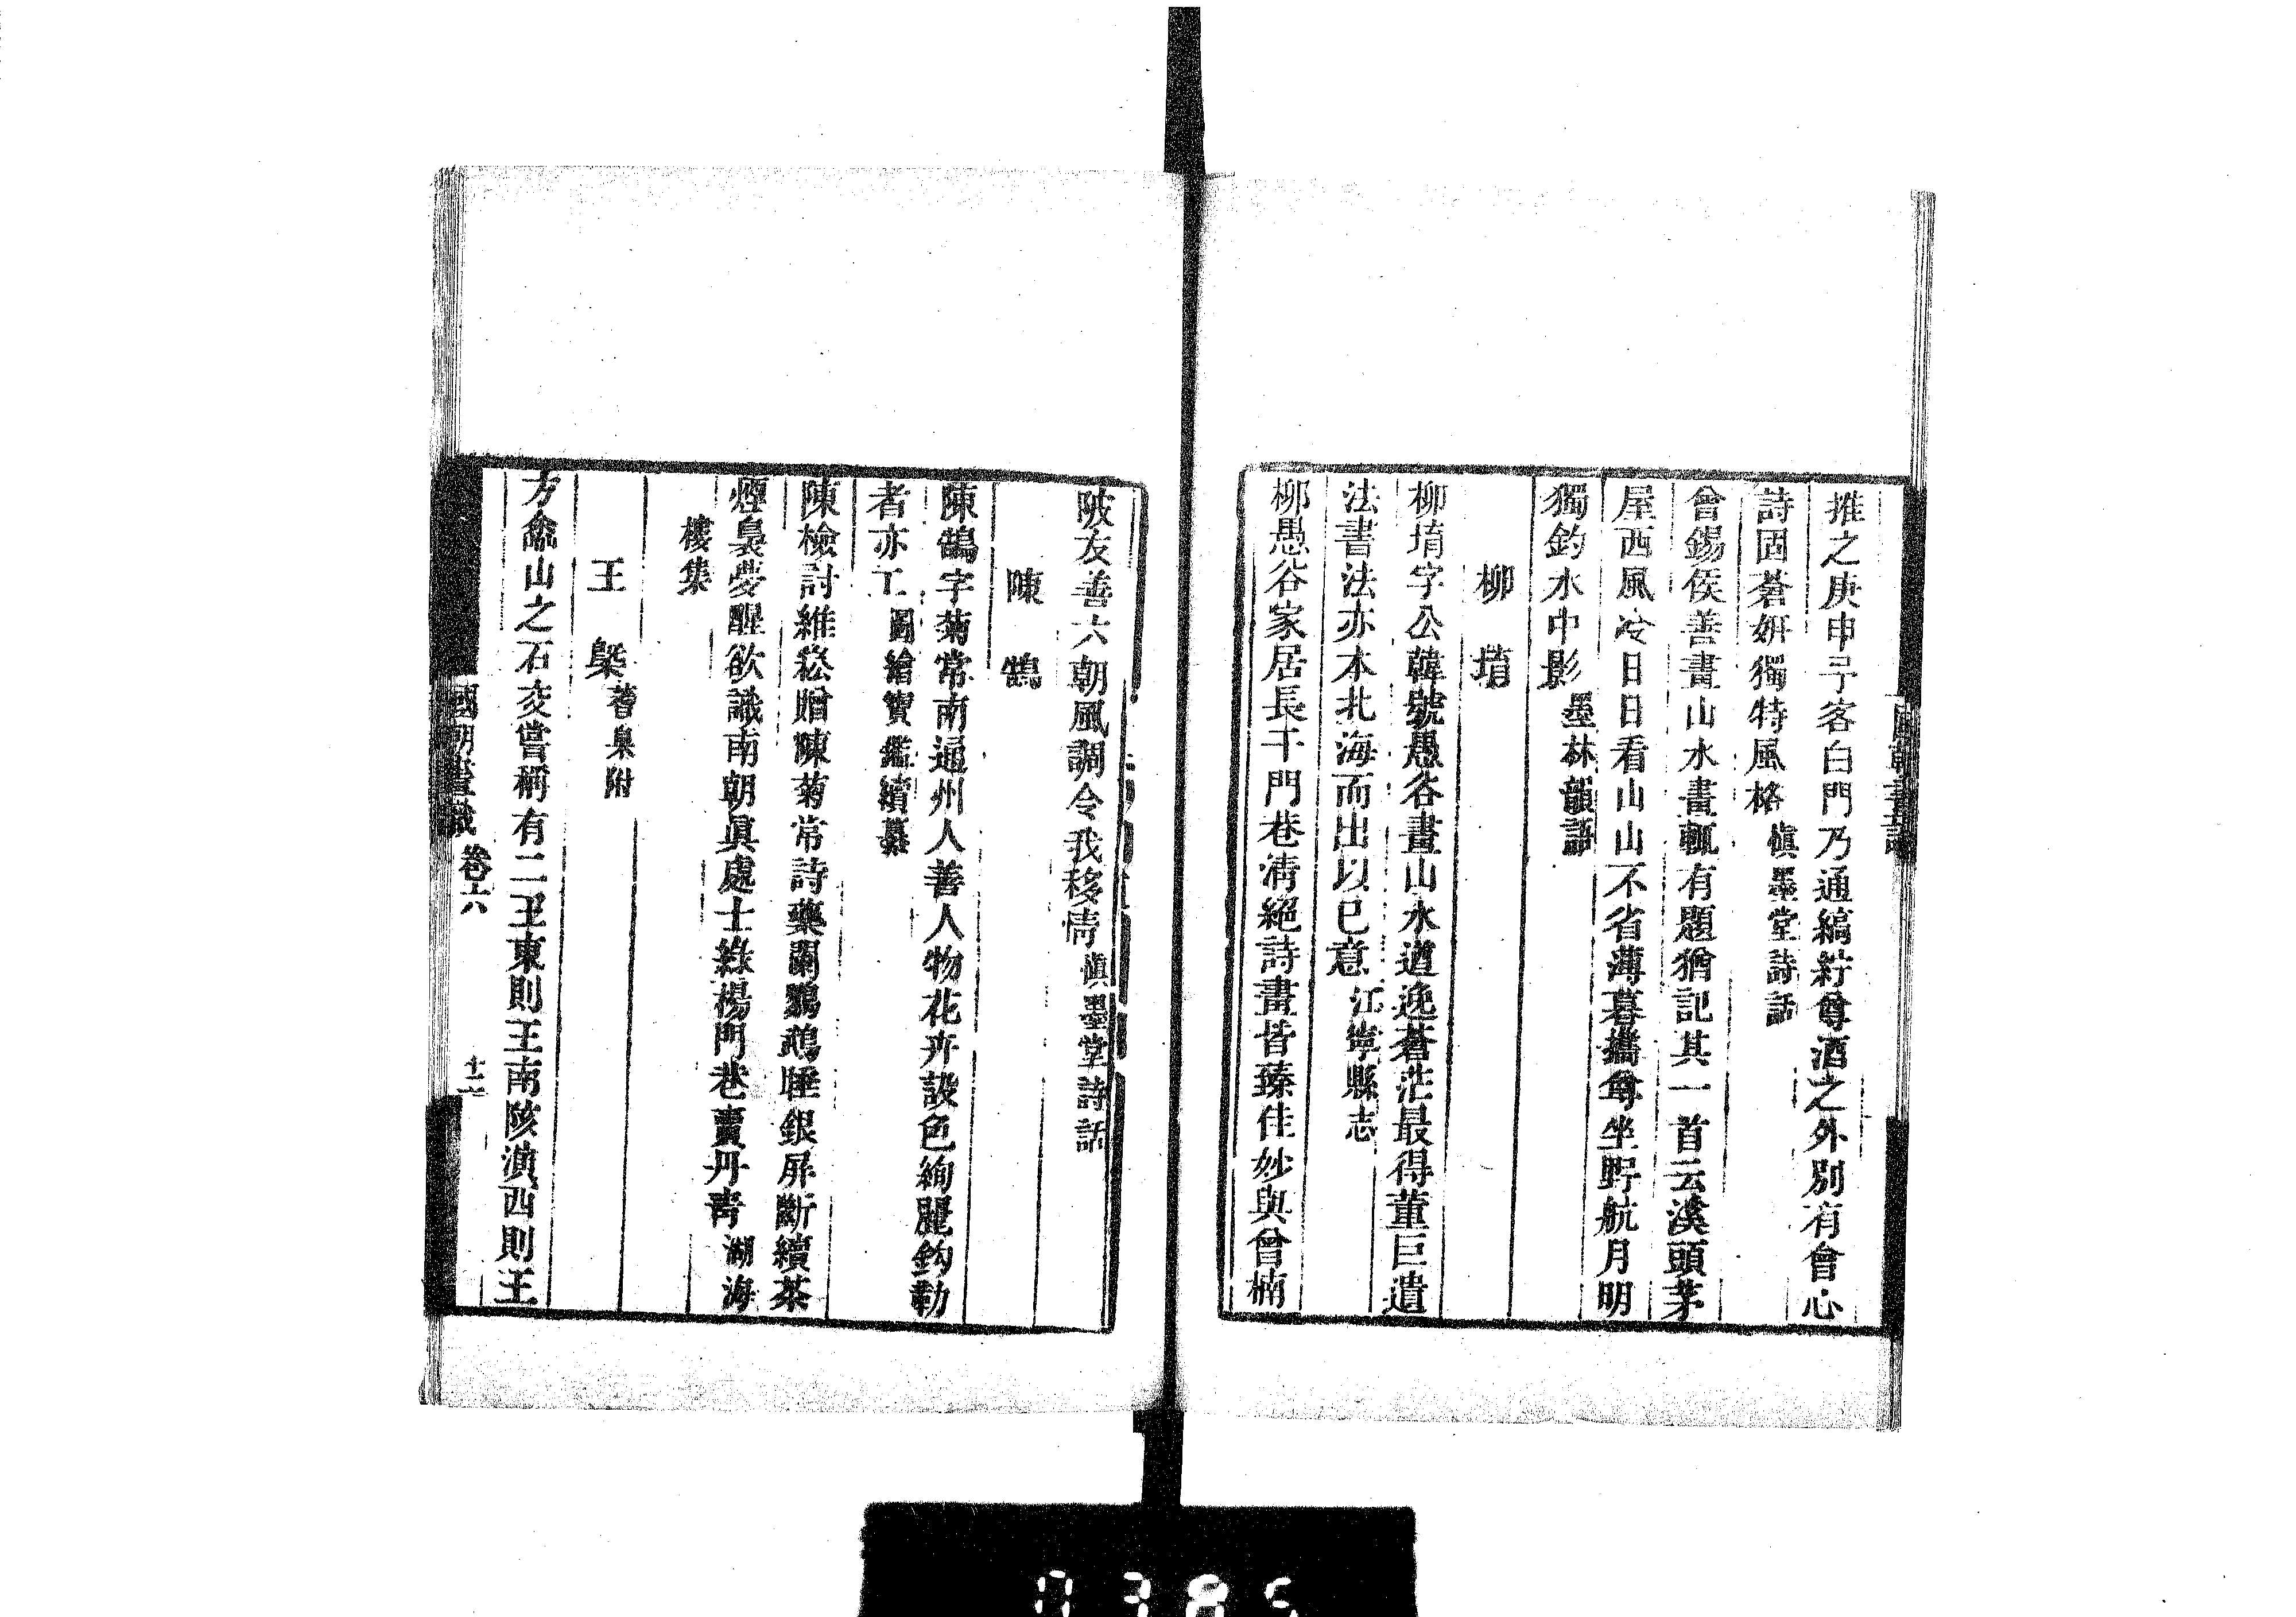 推之庚申予客白門乃通縞紵尊酒之外別有會心
詩固蒼妍獨特風格 愼墨堂詩話
曾錫侯善畫山水畫輒有題猶記其一首云溪頭茅
屋西風冷日日看山山不省薄暮攜尊坐野航月明
獨釣水中影 墨林韻語
柳堉
柳堉字公韓號愚谷畫山水遒逸蒼茫最得董巨遺
法書法亦本北海而出以已意 江寧縣志
柳愚谷家居長干門巷淸絕詩畫皆臻佳妙與曾楠
陂友善六朝風調令我移情 愼墨堂詩話
陳鵠
陳鵠字菊常南通州人善人物花卉設色絢麗鈎勒
者亦工 圖繪寶鑑續纂
陳檢討維崧贈陳菊常詩藥闌鸚鵡睡銀屏斷續茶
煙裊夢醒欲識南朝眞處士綠楊門巷賣丹青 湖海
樓集
王槩 蓍臬附
方嵞山之石交嘗稱有二王東則王南陔濱西則王
國朝畫識 卷六 十二
0385